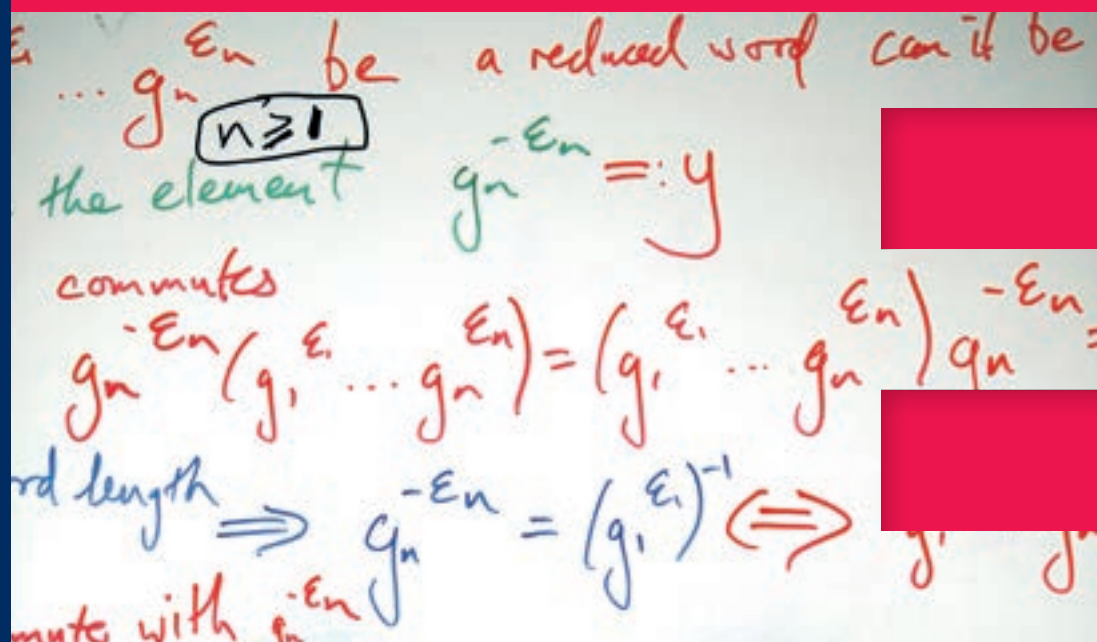 ... gₙ^εₙ be a reduced word can it be
n ≥ 1
the element gₙ^-εₙ =: y
commutes
gₙ^-εₙ (g₁^ε₁ ... gₙ^εₙ) = (g₁^ε₁ ... gₙ^εₙ) gₙ^-εₙ =
length ⟹ gₙ^-εₙ = (g₁^ε₁)^-1 ⟺
with gₙ^-εₙ